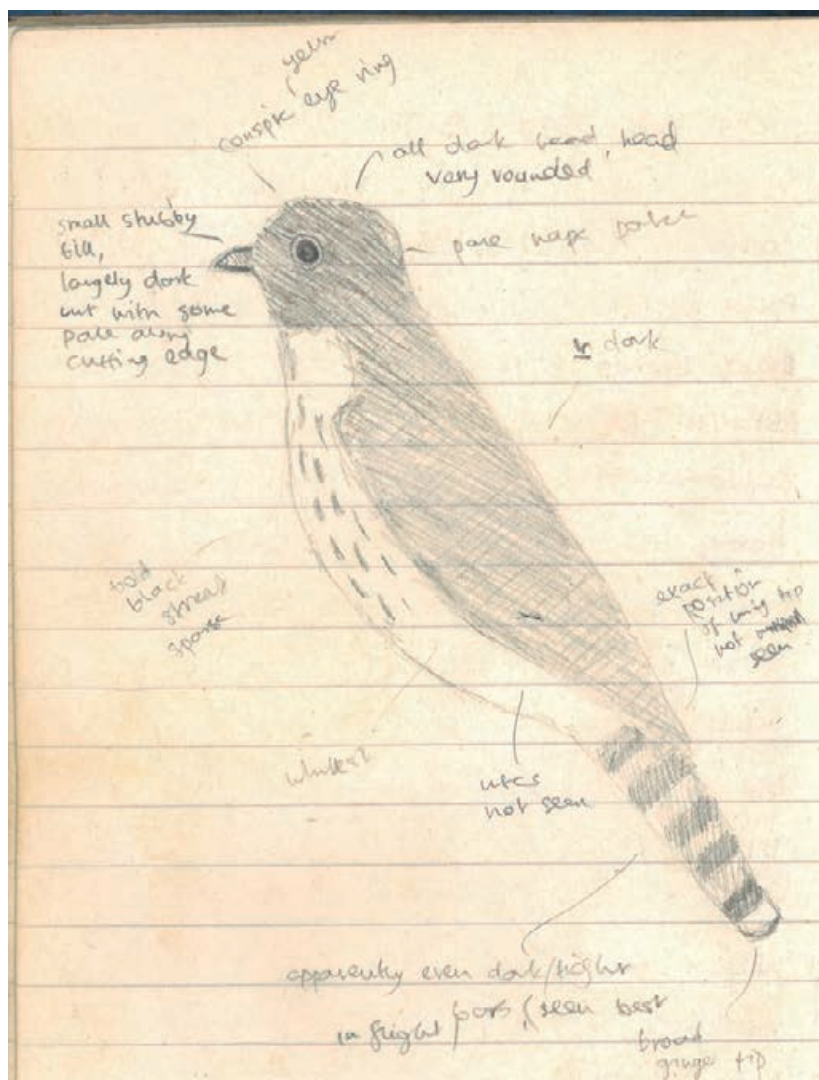 yellow
conspic eye ring
all dark head, head
very rounded
small stubby
bill,
largely dark
but with some
pale along
cutting edge
pale nape patch
dark
bold
black
streaks
sparse
exact
position
of wing tip
not
seen
whitest
utcs
not seen
apparently even dark/lighter
in flight bars (seen best
broad
ginger tip